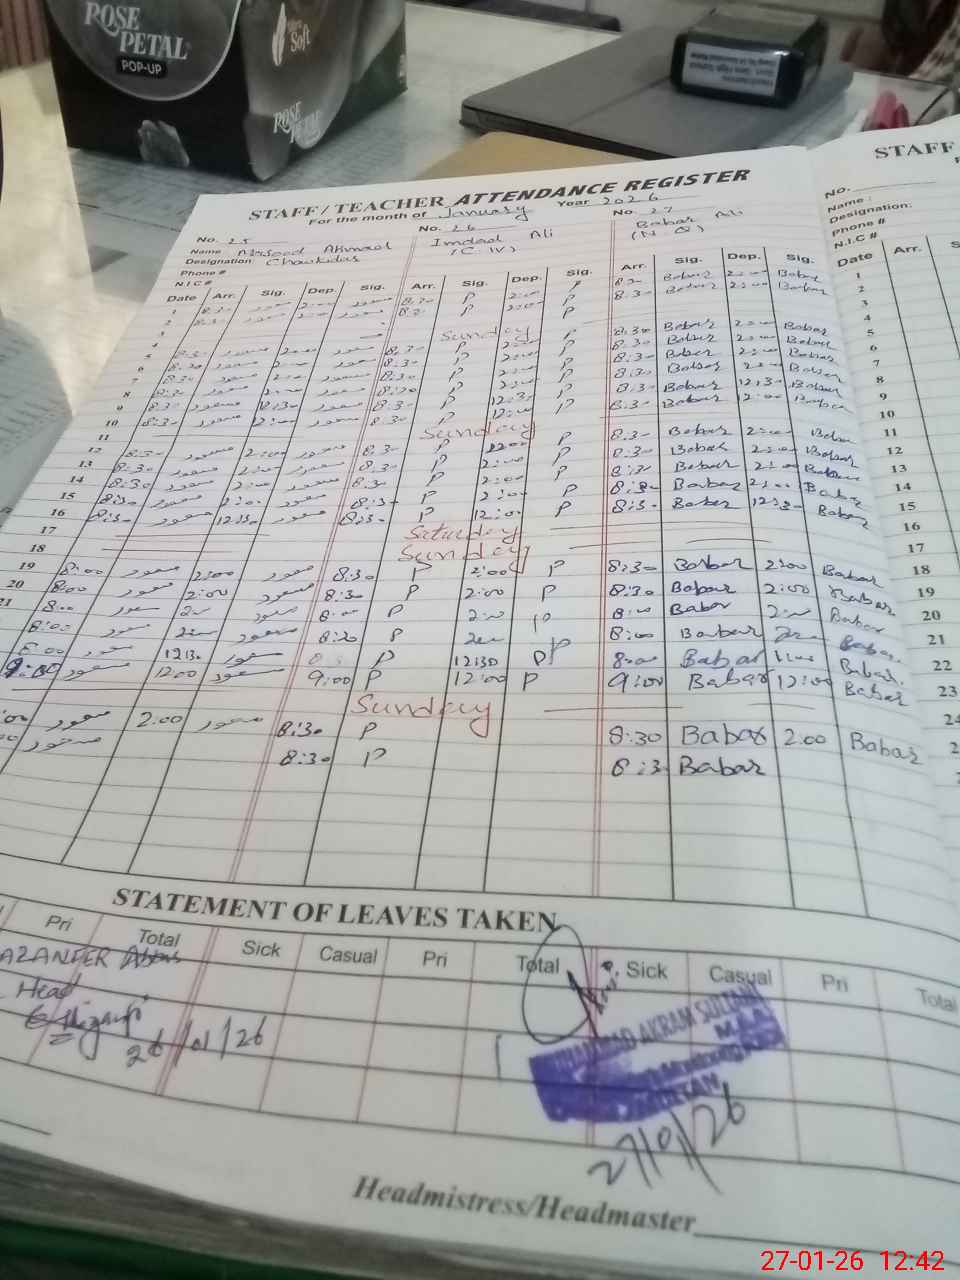 ROSE PETAL
POP-UP
Soft
ROSE PETAL
STAFF / TEACHER ATTENDANCE REGISTER
STAFF
For the month of January Year 2026
No. 25 No. 26 No. 27
No.
Name: Masood Ahmad Imdad Ali Babar Ali
Name:
Designation: Chowkidar (C. IV) (N Q)
Designation:
Phone #
Phone #
N.I.C #
N.I.C #
Date Arr. Sig. Dep. Sig. Arr. Sig. Dep. Sig. Arr. Sig. Dep. Sig.
Date Arr.
1 8:30 مسعود 2:00 مسعود 8:30 P 2:00 P 8:30 Babar 2:00 Babar
2 8:30 مسعود 2:00 مسعود 8:30 P 2:00 P 8:30 Babar 2:00 Babar
Sunday
5 8:30 مسعود 2:00 مسعود 8:30 P 2:00 P 8:30 Babar 2:00 Babar
6 8:30 مسعود 2:00 مسعود 8:30 P 2:00 P 8:30 Babar 2:00 Babar
7 8:30 مسعود 2:00 مسعود 8:30 P 2:00 P 8:30 Babar 2:00 Babar
8 8:30 مسعود 2:00 مسعود 8:30 P 2:00 P 8:30 Babar 2:00 Babar
9 8:30 مسعود 12:30 مسعود 8:30 P 12:30 P 8:30 Babar 12:30 Babar
10 8:30 مسعود 12:00 مسعود 8:30 P 12:00 P 8:30 Babar 12:00 Babar
11 Sunday
12 8:30 مسعود 2:00 مسعود 8:30 P 2:00 P 8:30 Babar 2:00 Babar
13 8:30 مسعود 2:00 مسعود 8:30 P 2:00 P 8:30 Babar 2:00 Babar
14 8:30 مسعود 2:00 مسعود 8:30 P 2:00 P 8:30 Babar 2:00 Babar
15 8:30 مسعود 2:00 مسعود 8:30 P 2:00 P 8:30 Babar 2:00 Babar
16 8:30 مسعود 12:30 مسعود 8:30 P 12:00 P 8:30 Babar 12:30 Babar
17 Saturday
18 Sunday
19 8:00 مسعود 2:00 مسعود 8:30 P 2:00 P 8:30 Babar 2:00 Babar
20 8:00 مسعود 2:00 مسعود 8:30 P 2:00 P 8:30 Babar 2:00 Babar
21 8:00 مسعود 2:00 مسعود 8:00 P 2:00 P 8:00 Babar 2:00 Babar
8:00 مسعود 2:00 مسعود 8:30 P 2:00 P 8:00 Babar 2:00 Babar
8:00 مسعود 12:30 مسعود P 12:30 P 8:00 Babar Babar
9:00 مسعود 12:00 مسعود 9:00 P 12:00 P 9:00 Babar 12:00 Babar
Sunday
مسعود 2:00 مسعود 8:30 P 8:30 Babar 2:00 Babar
مسعود 8:30 P 8:30 Babar
1
2
3
4
5
6
7
8
9
10
11
12
13
14
15
16
17
18
19
20
21
22
23
STATEMENT OF LEAVES TAKEN
Pri Total Sick Casual Pri Total Sick Casual Pri Total
Head
26/01/26
MUHAMMAD AKRAM SULTAN
27/01/26
Headmistress/Headmaster
27-01-26 12:42